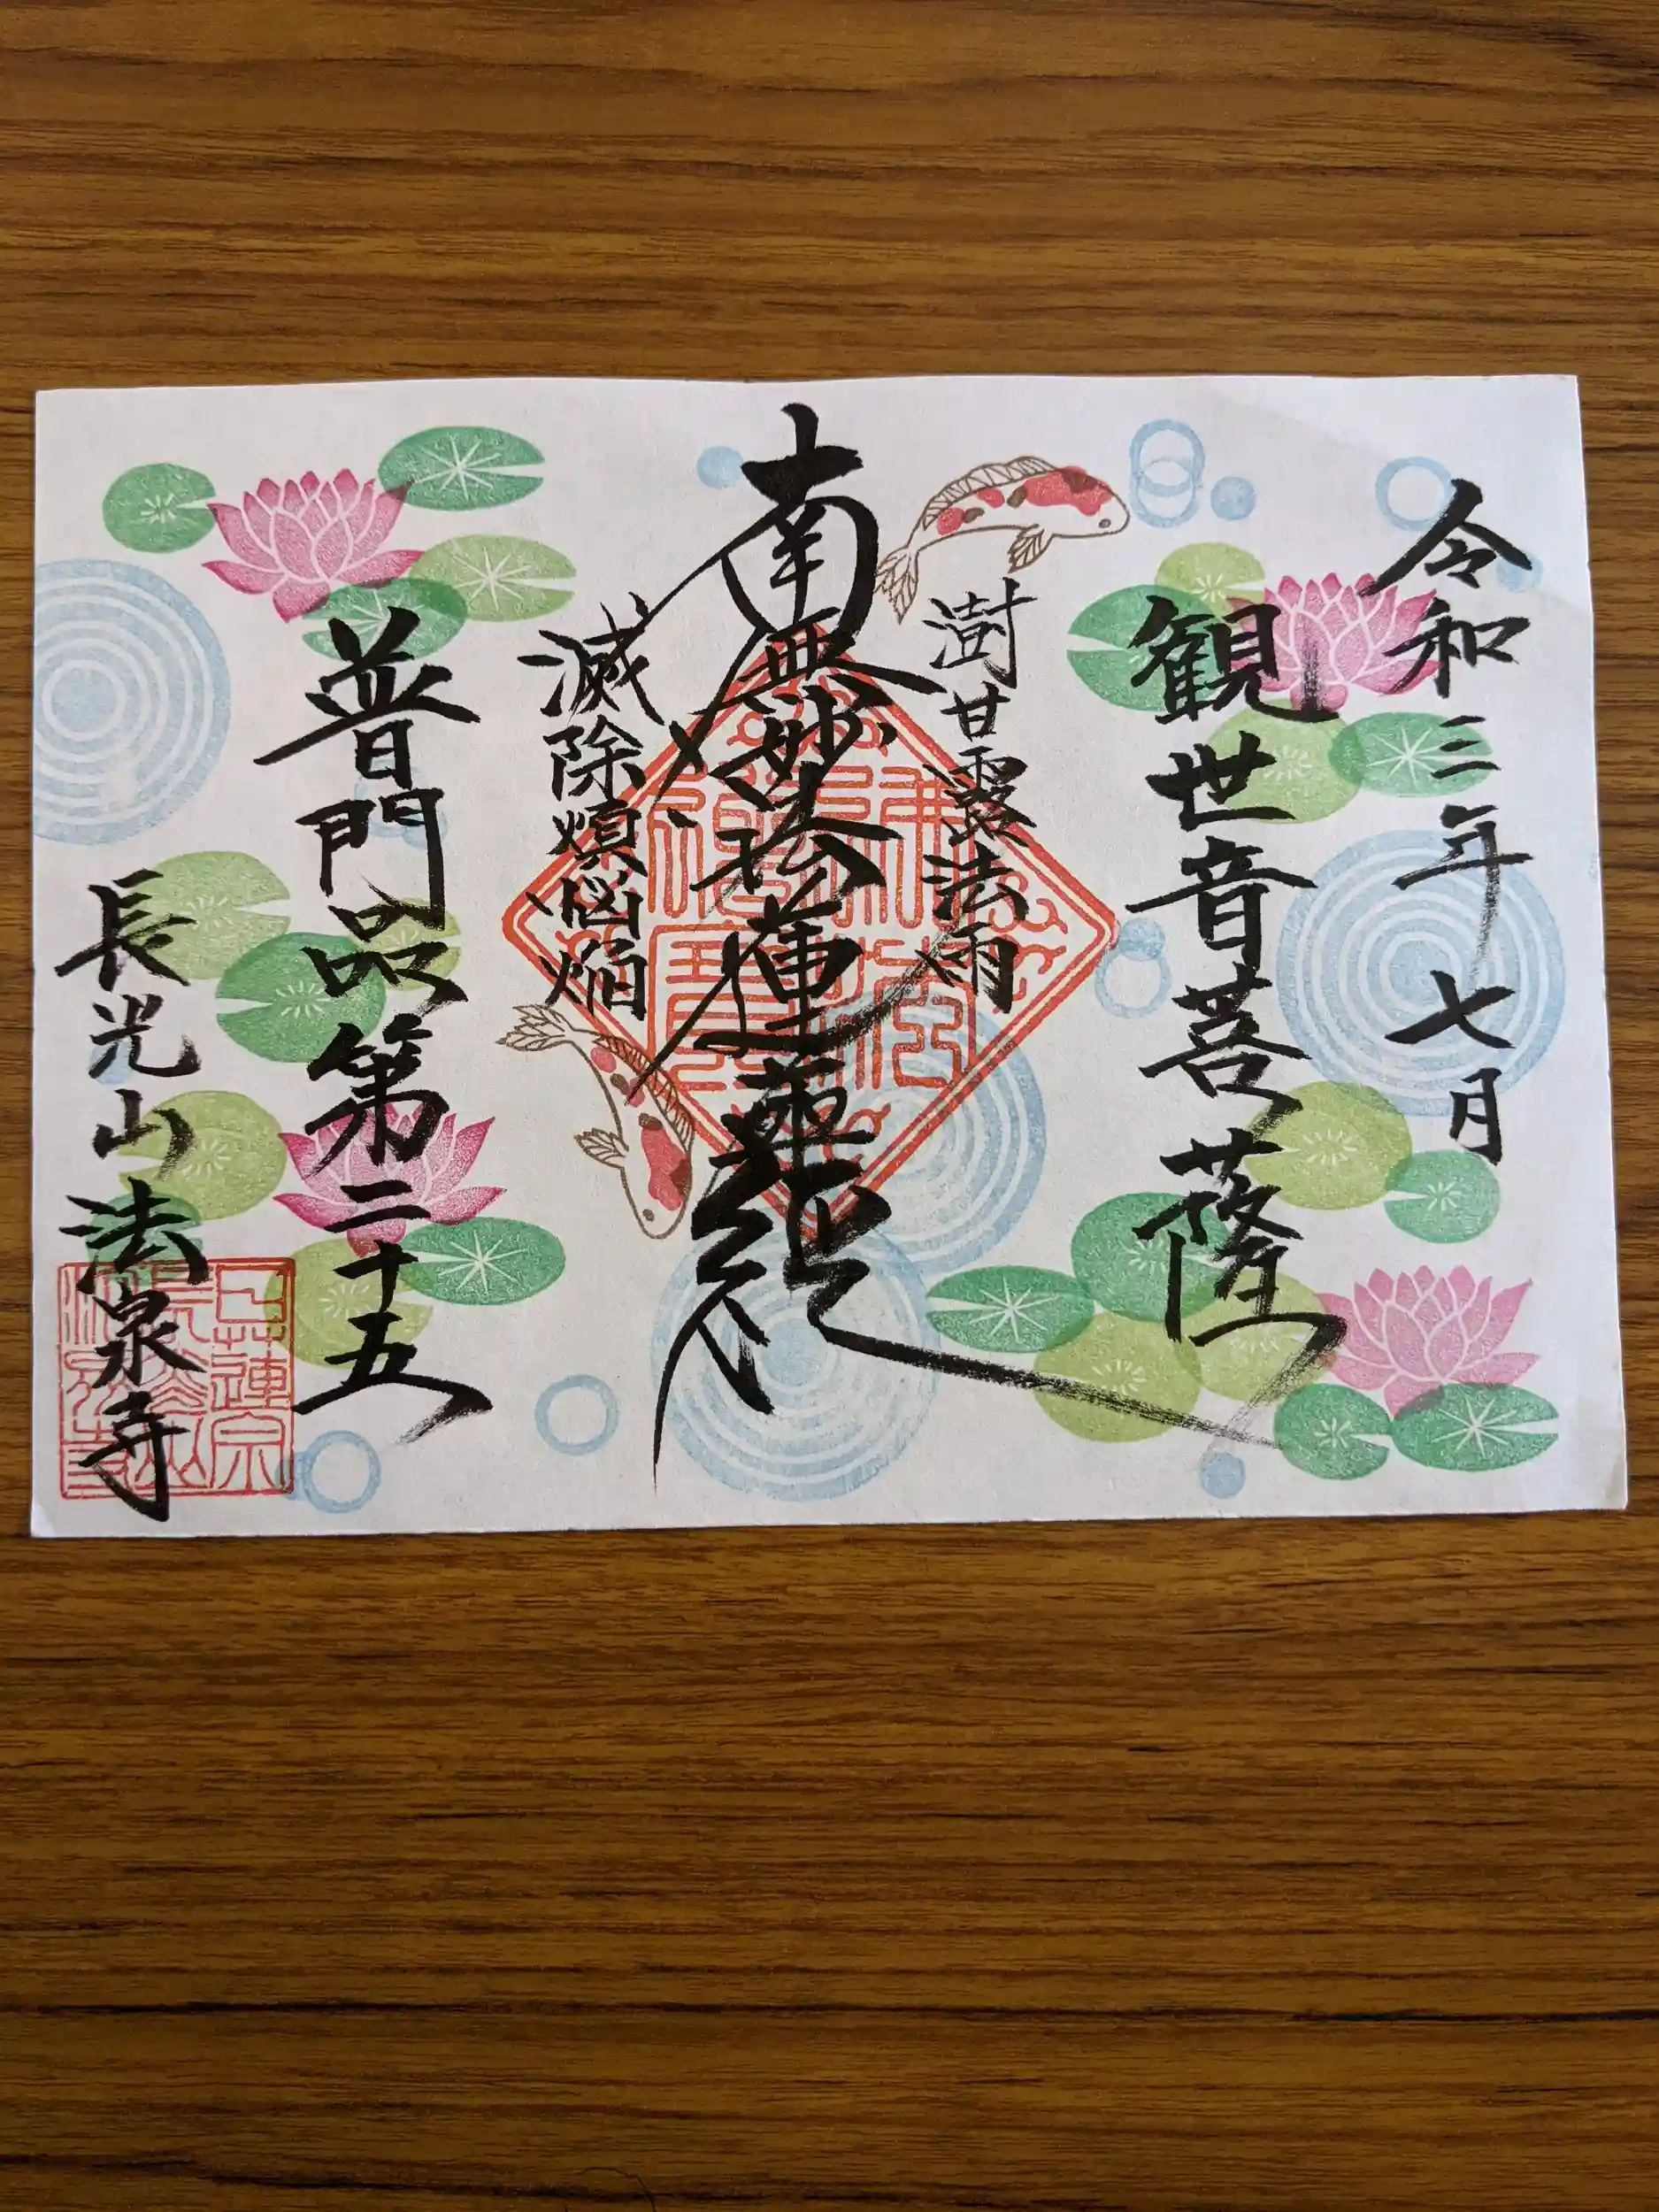 令和三年七月
観世音菩薩
澍甘露法雨
南無妙法蓮華経
滅除煩悩焔
普門品第二十五
長光山法泉寺
日蓮宗
長光山
法泉寺